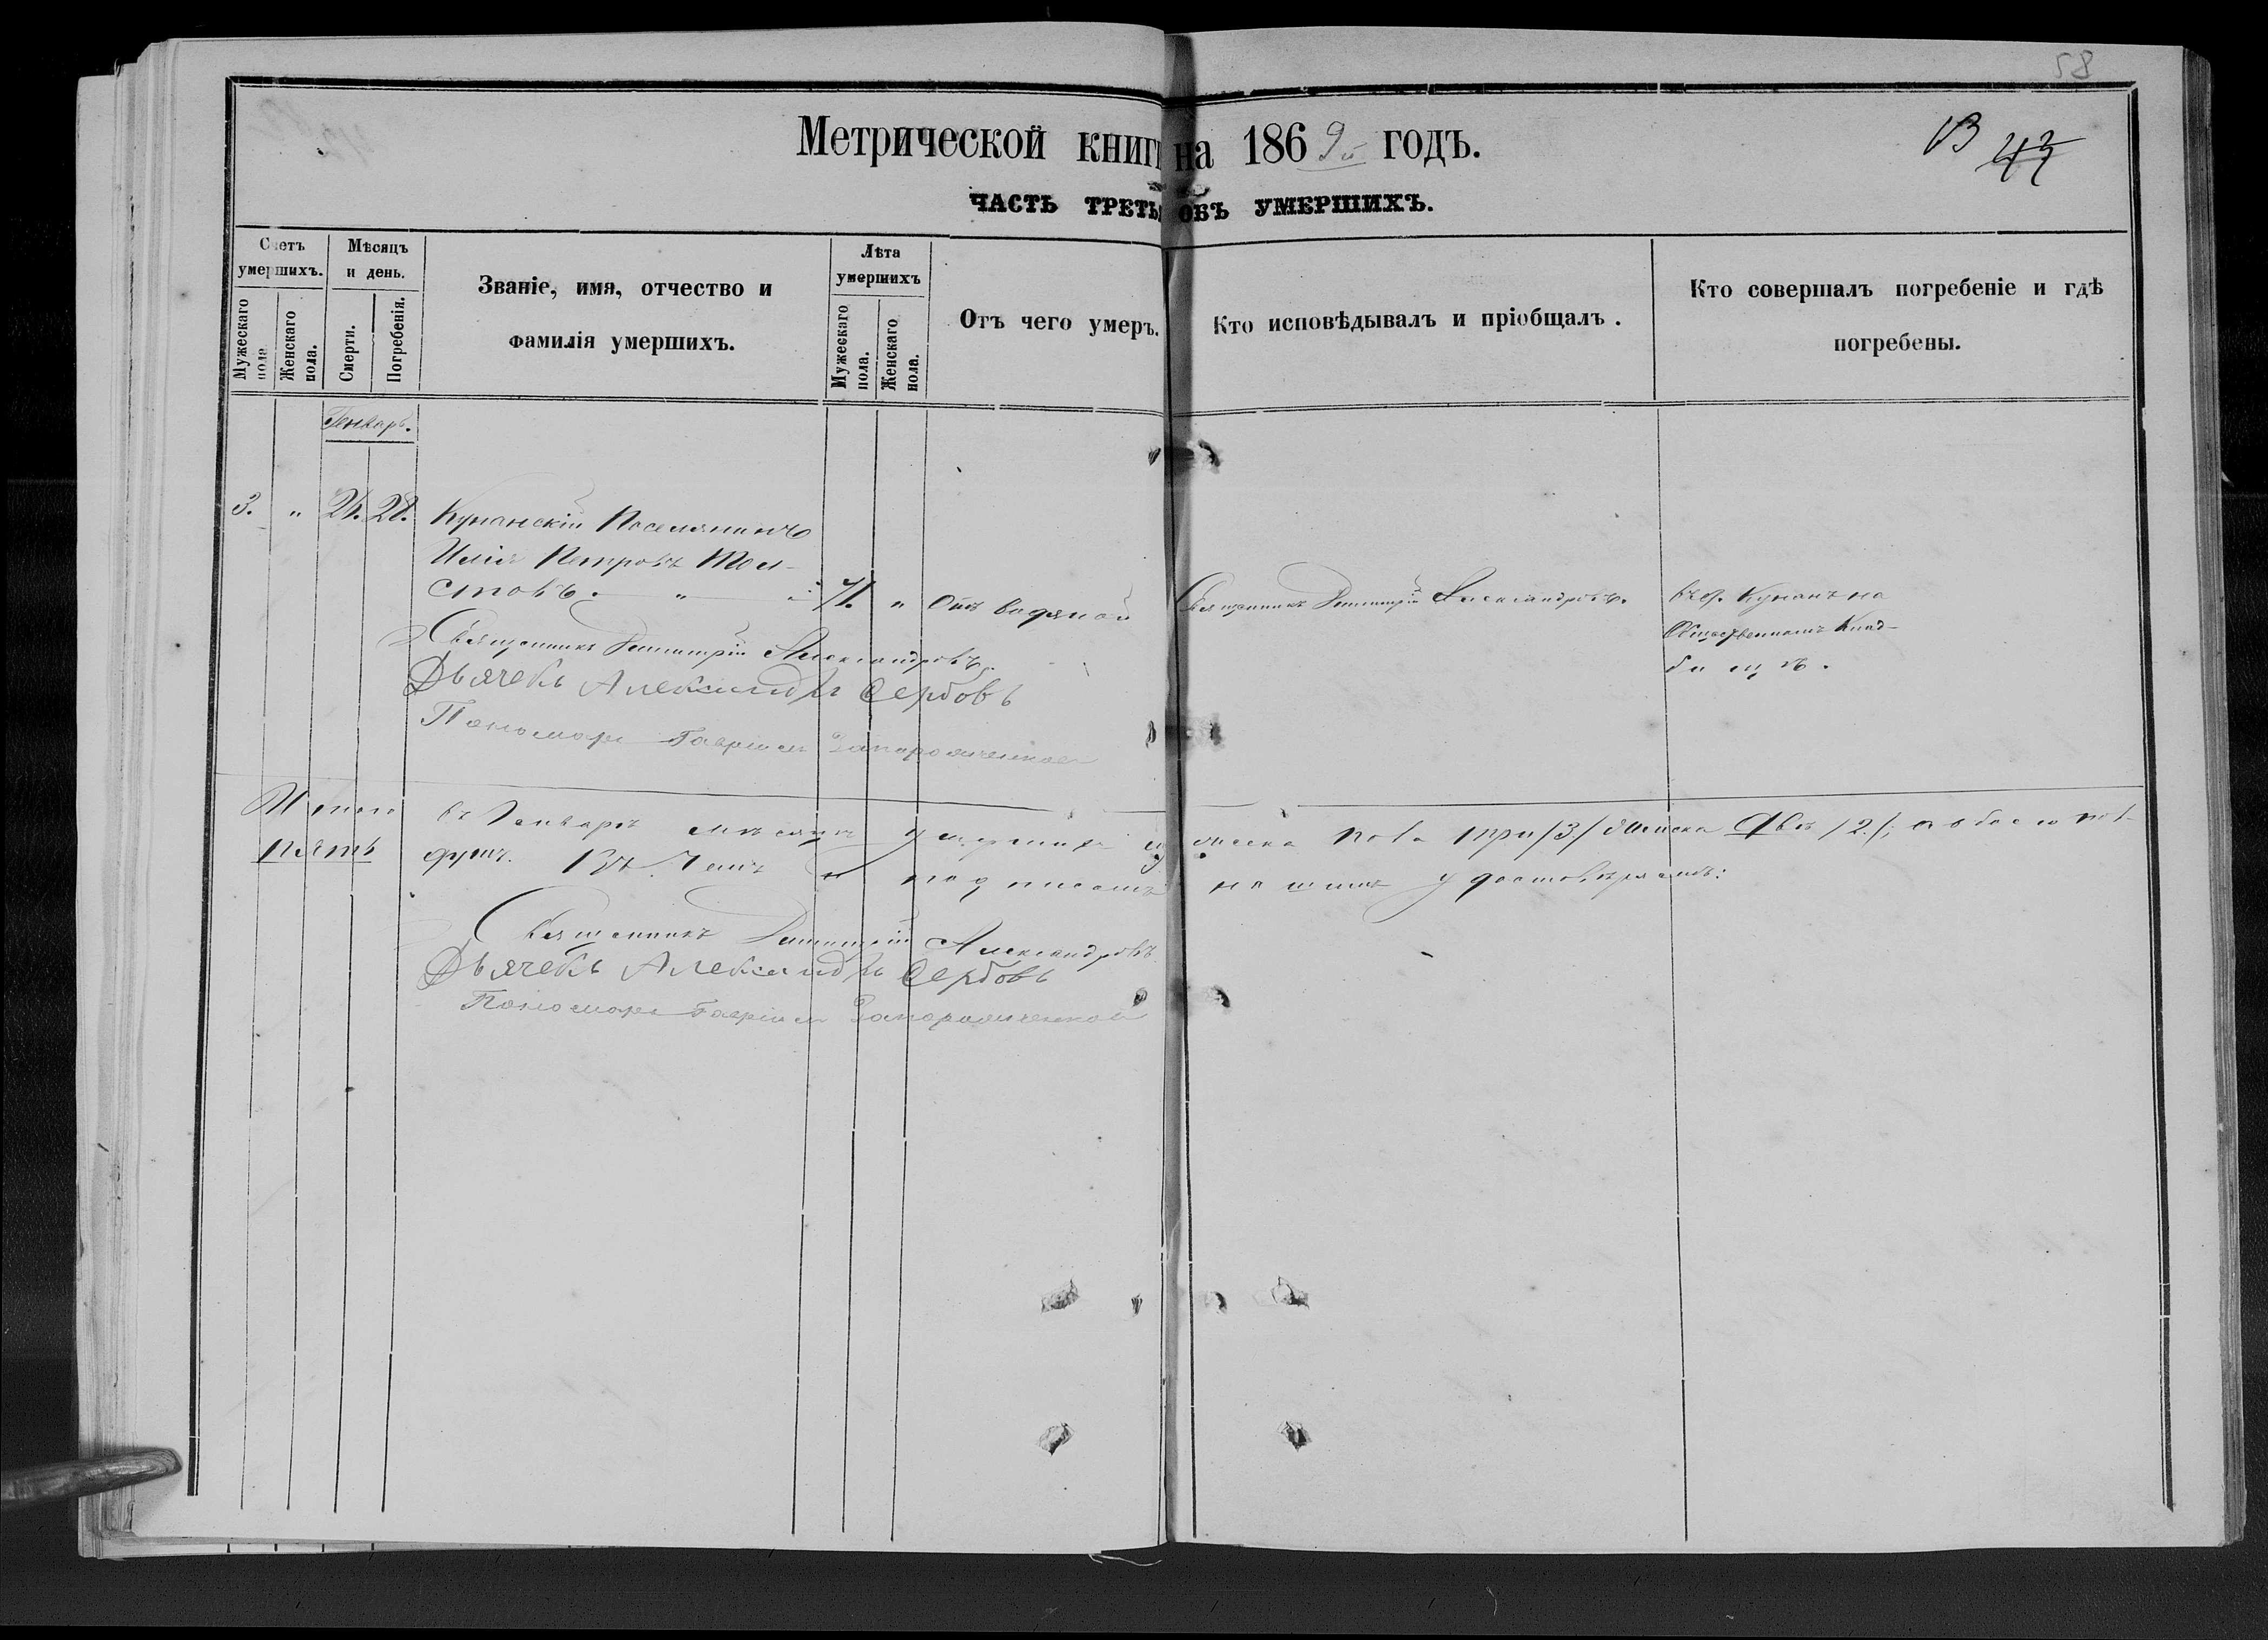 58
Метрической книги на 1869й годъ.
43
ЧАСТЬ ТРЕТЬЯ ОБЪ УМЕРШИХЪ.
Счетъ умершихъ.
Мужескаго пола.
Женскаго пола.
Мѣсяцъ и день.
Смерти.
Погребенія.
Званіе, имя, отчество и
фамилія умершихъ.
Лѣта умершихъ
Мужескаго пола.
Женскаго пола.
Отъ чего умеръ.
Кто исповѣдывалъ и пріобщалъ.
Кто совершалъ погребеніе и гдѣ
погребены.
Генварь.
3. " 28. Кунанскій Поселянинъ
Илія Петровъ Тол-
стовъ. " 71. " Отъ водяной Священникъ Димитрій Александровъ. въ с. Кунанъ на
Общественномъ Клад-
бищѣ.
Священникъ Димитрій Александровъ.
Дьячекъ Александръ Сербовъ
Пономарь Гавріилъ
Итого въ Генварѣ мѣсяцѣ умершихъ мужеска пола три /3/ женска двѣ /2/; а обоего пол-
пять душъ. Въ чемъ и подписомъ нашимъ удостовѣряемъ:
Священникъ Димитрій Александровъ
Дьячекъ Александръ Сербовъ
Пономарь Гавріилъ